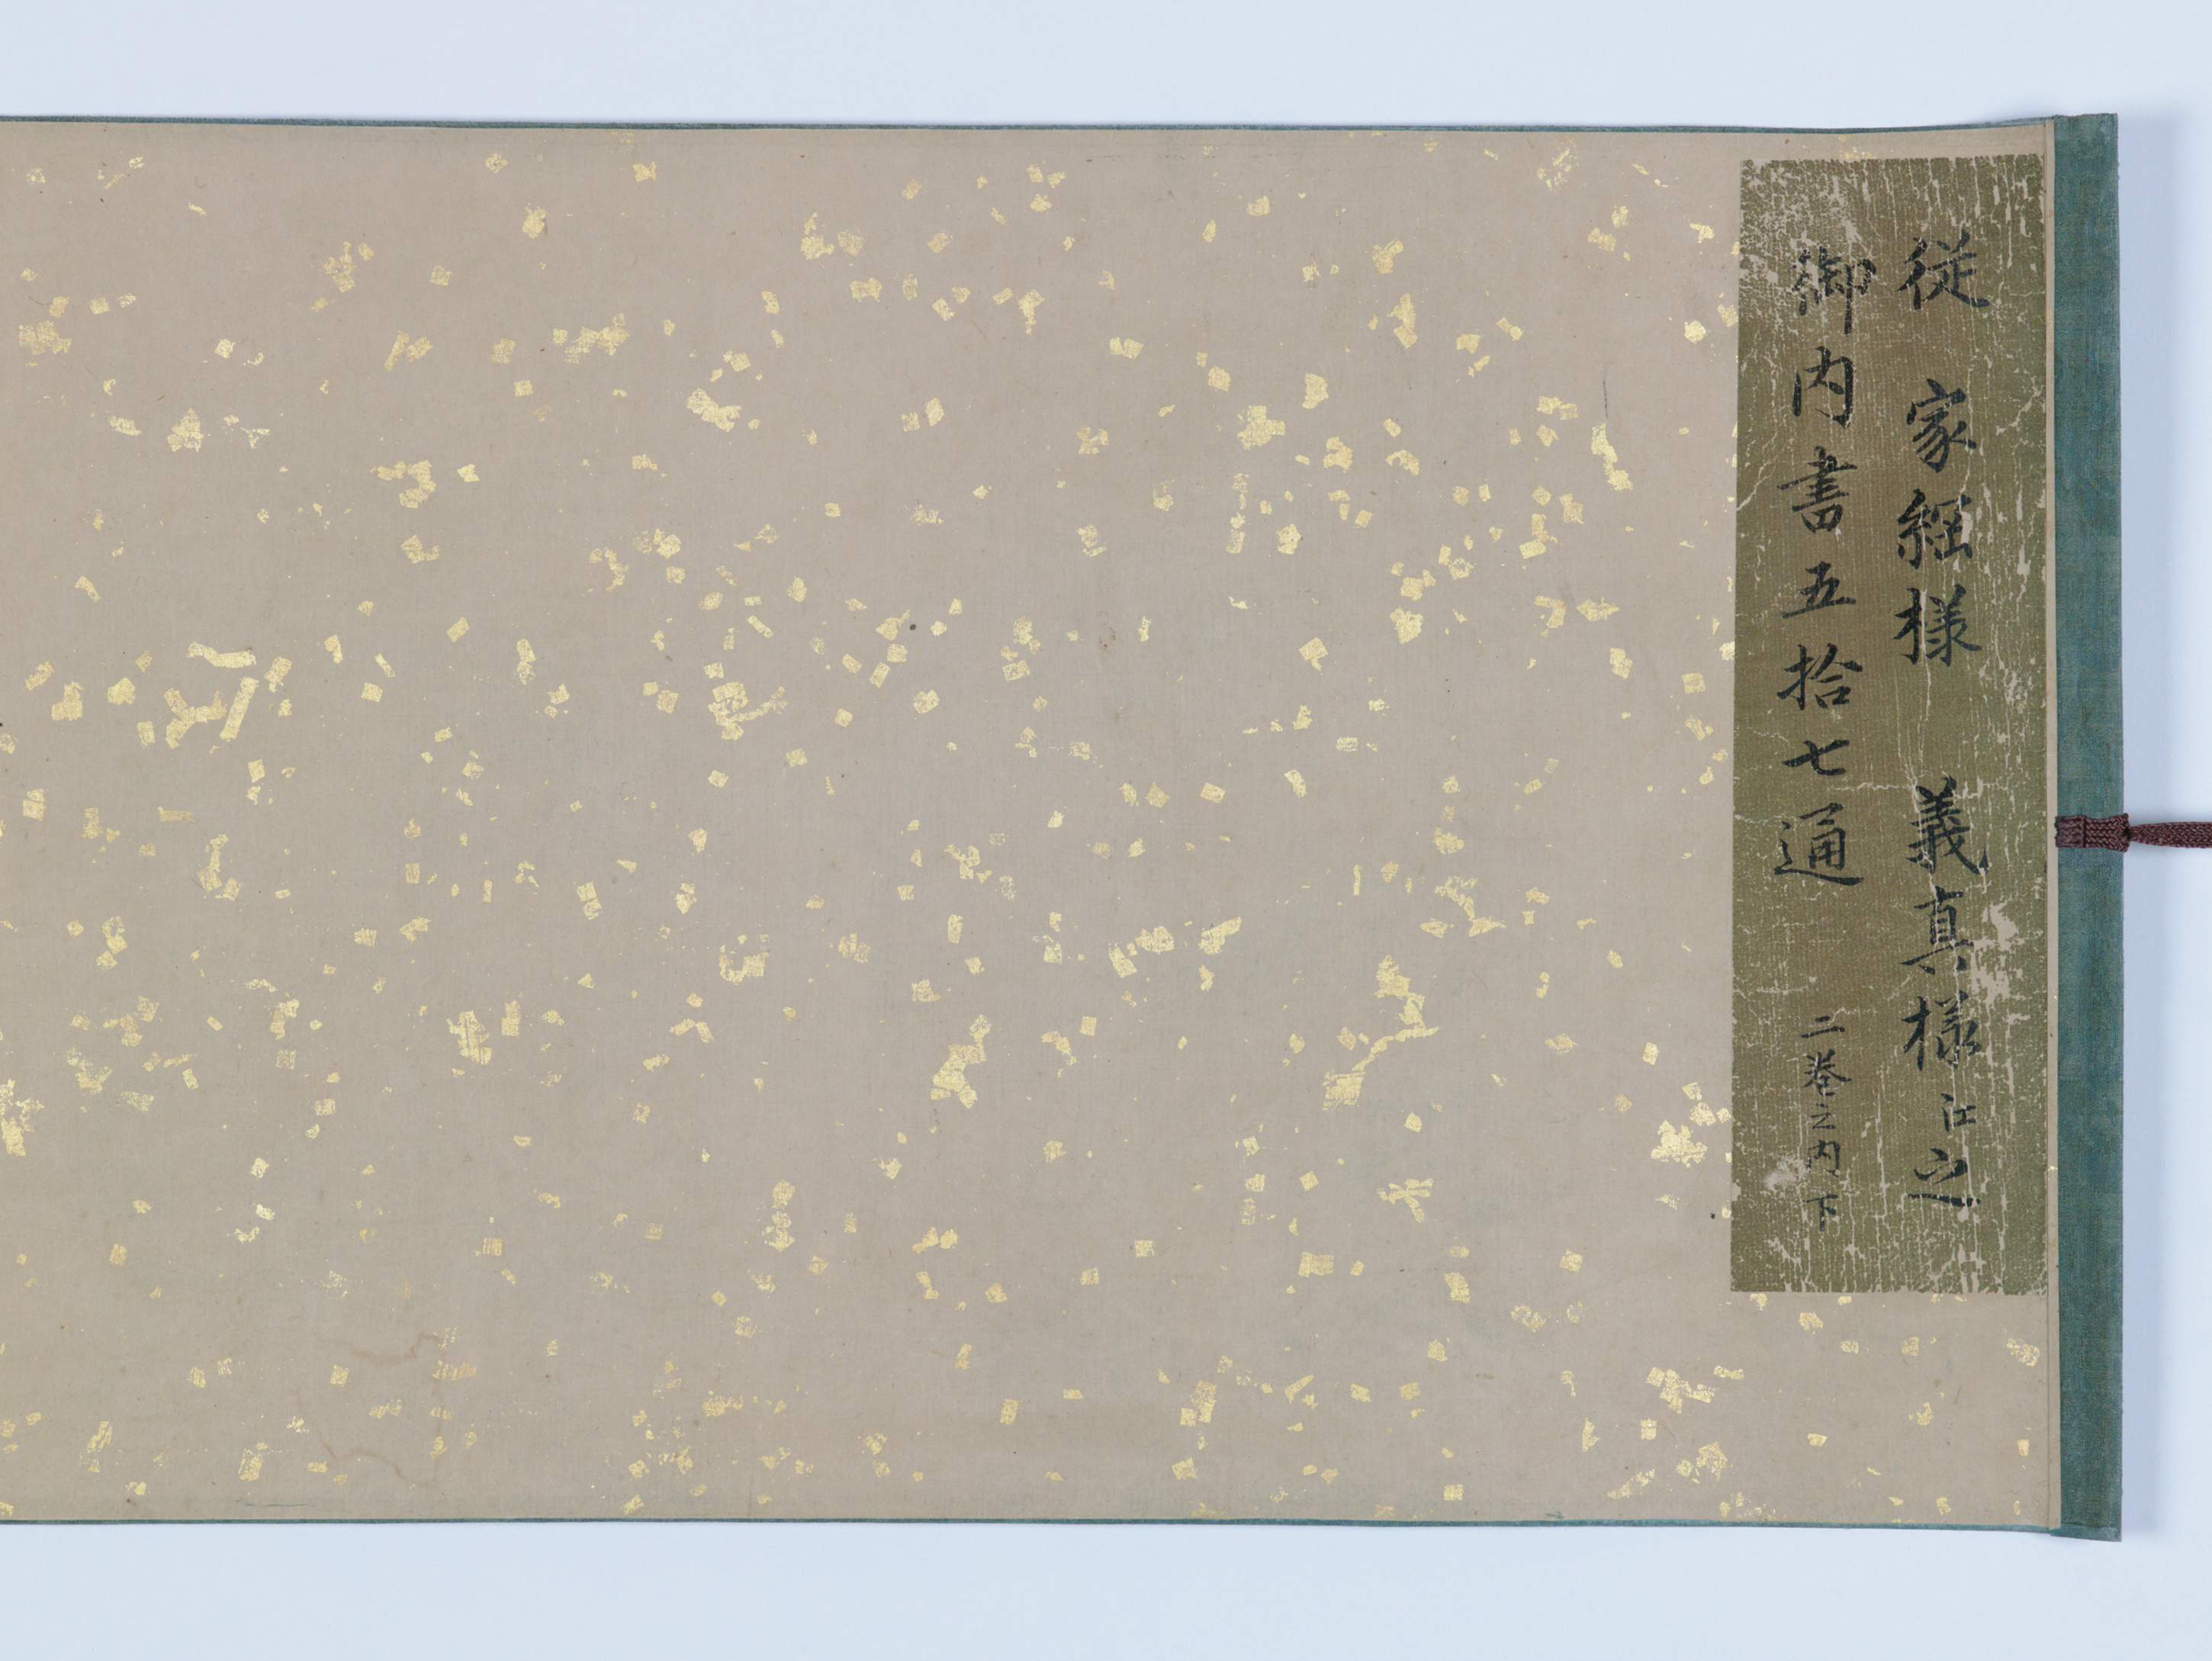 従 家綱様 義真様江之
御内書五拾七通 二巻之内下